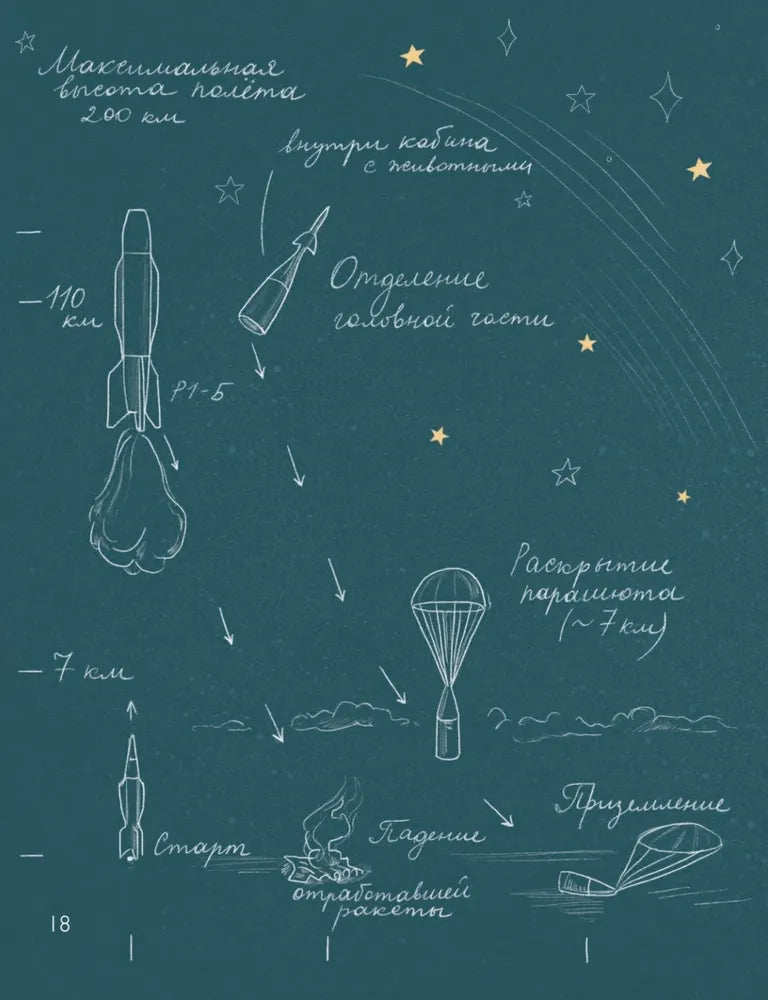 Максимальная
высота полёта
200 км
внутри кабина
с животными
110
км
Отделение
головной части
Р1-Б
Раскрытие
парашюта
(~7 км)
7 км
Старт
Падение
отработавшей
ракеты
Приземление
18